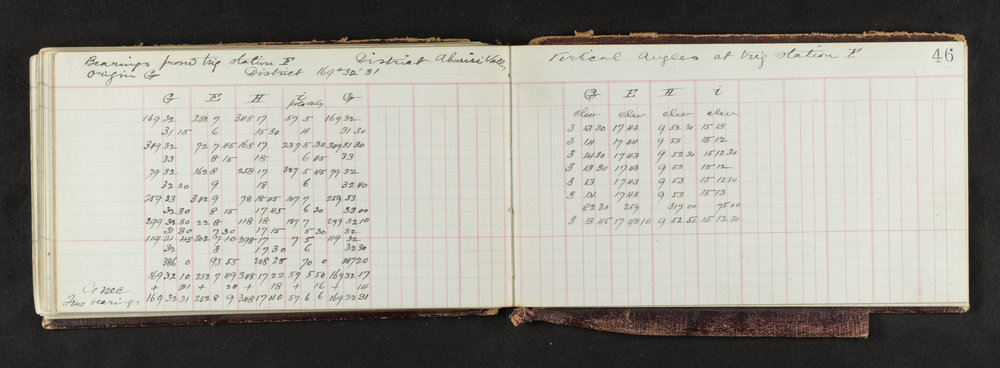 Bearings from trig station F District Ahuriri Valley
Origin G District 169° 32' 31
G E H i G
pole only
169 32 252 7 348 17 57 5 169 32
31 15 6 15 30 4 31 30
349 32 72 7 45 168 17 237 5 30 349 31 30
33 8 15 18 6 45 33
79 32 162 8 258 17 327 5 45 79 32
32 30 9 18 6 32 40
259 33 342 9 78 18 45 147 7 259 33
32 30 8 15 17 45 6 30 33 00
299 32 30 22 8 118 18 187 7 299 32 10
31 30 7 30 17 15 5 30 32
119 31 45 202 7 10 298 17 7 5 119 32
32 8 17 30 6 32 30
386 0 93 55 208 25 70 0 387 20
169 32 10 252 7 49 348 17 22 57 5 50 169 32 17
+ 21 + 20 + 18 + 16 + 14
True bearings 169 32 31 252 8 9 348 17 40 57 6 6 169 32 31
Vertical Angles at trig station F
46
G E H i
elev elev elev elev
3 13 30 17 43 9 52 30 15 13
3 14 17 44 9 53 15 12
3 14 30 17 43 9 52 30 15 12 30
3 13 30 17 43 9 53 15 12
3 13 17 43 9 53 15 12 30
3 14 17 43 9 53 15 13
82 30 259 317 00 75 00
3 13 45 17 43 10 9 52 50 15 12 30